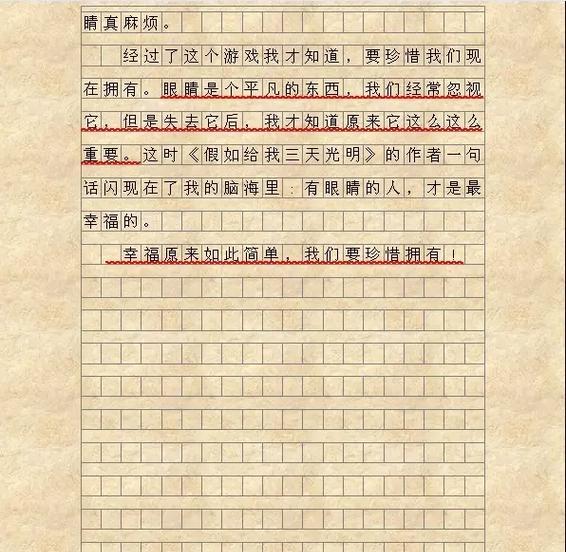 睛真麻烦。
经过了这个游戏我才知道，要珍惜我们现
在拥有。眼睛是个平凡的东西，我们经常忽视
它，但是失去它后，我才知道原来它这么这么
重要。这时《假如给我三天光明》的作者一句
话闪现在了我的脑海里：有眼睛的人，才是最
幸福的。
幸福原来如此简单，我们要珍惜拥有！